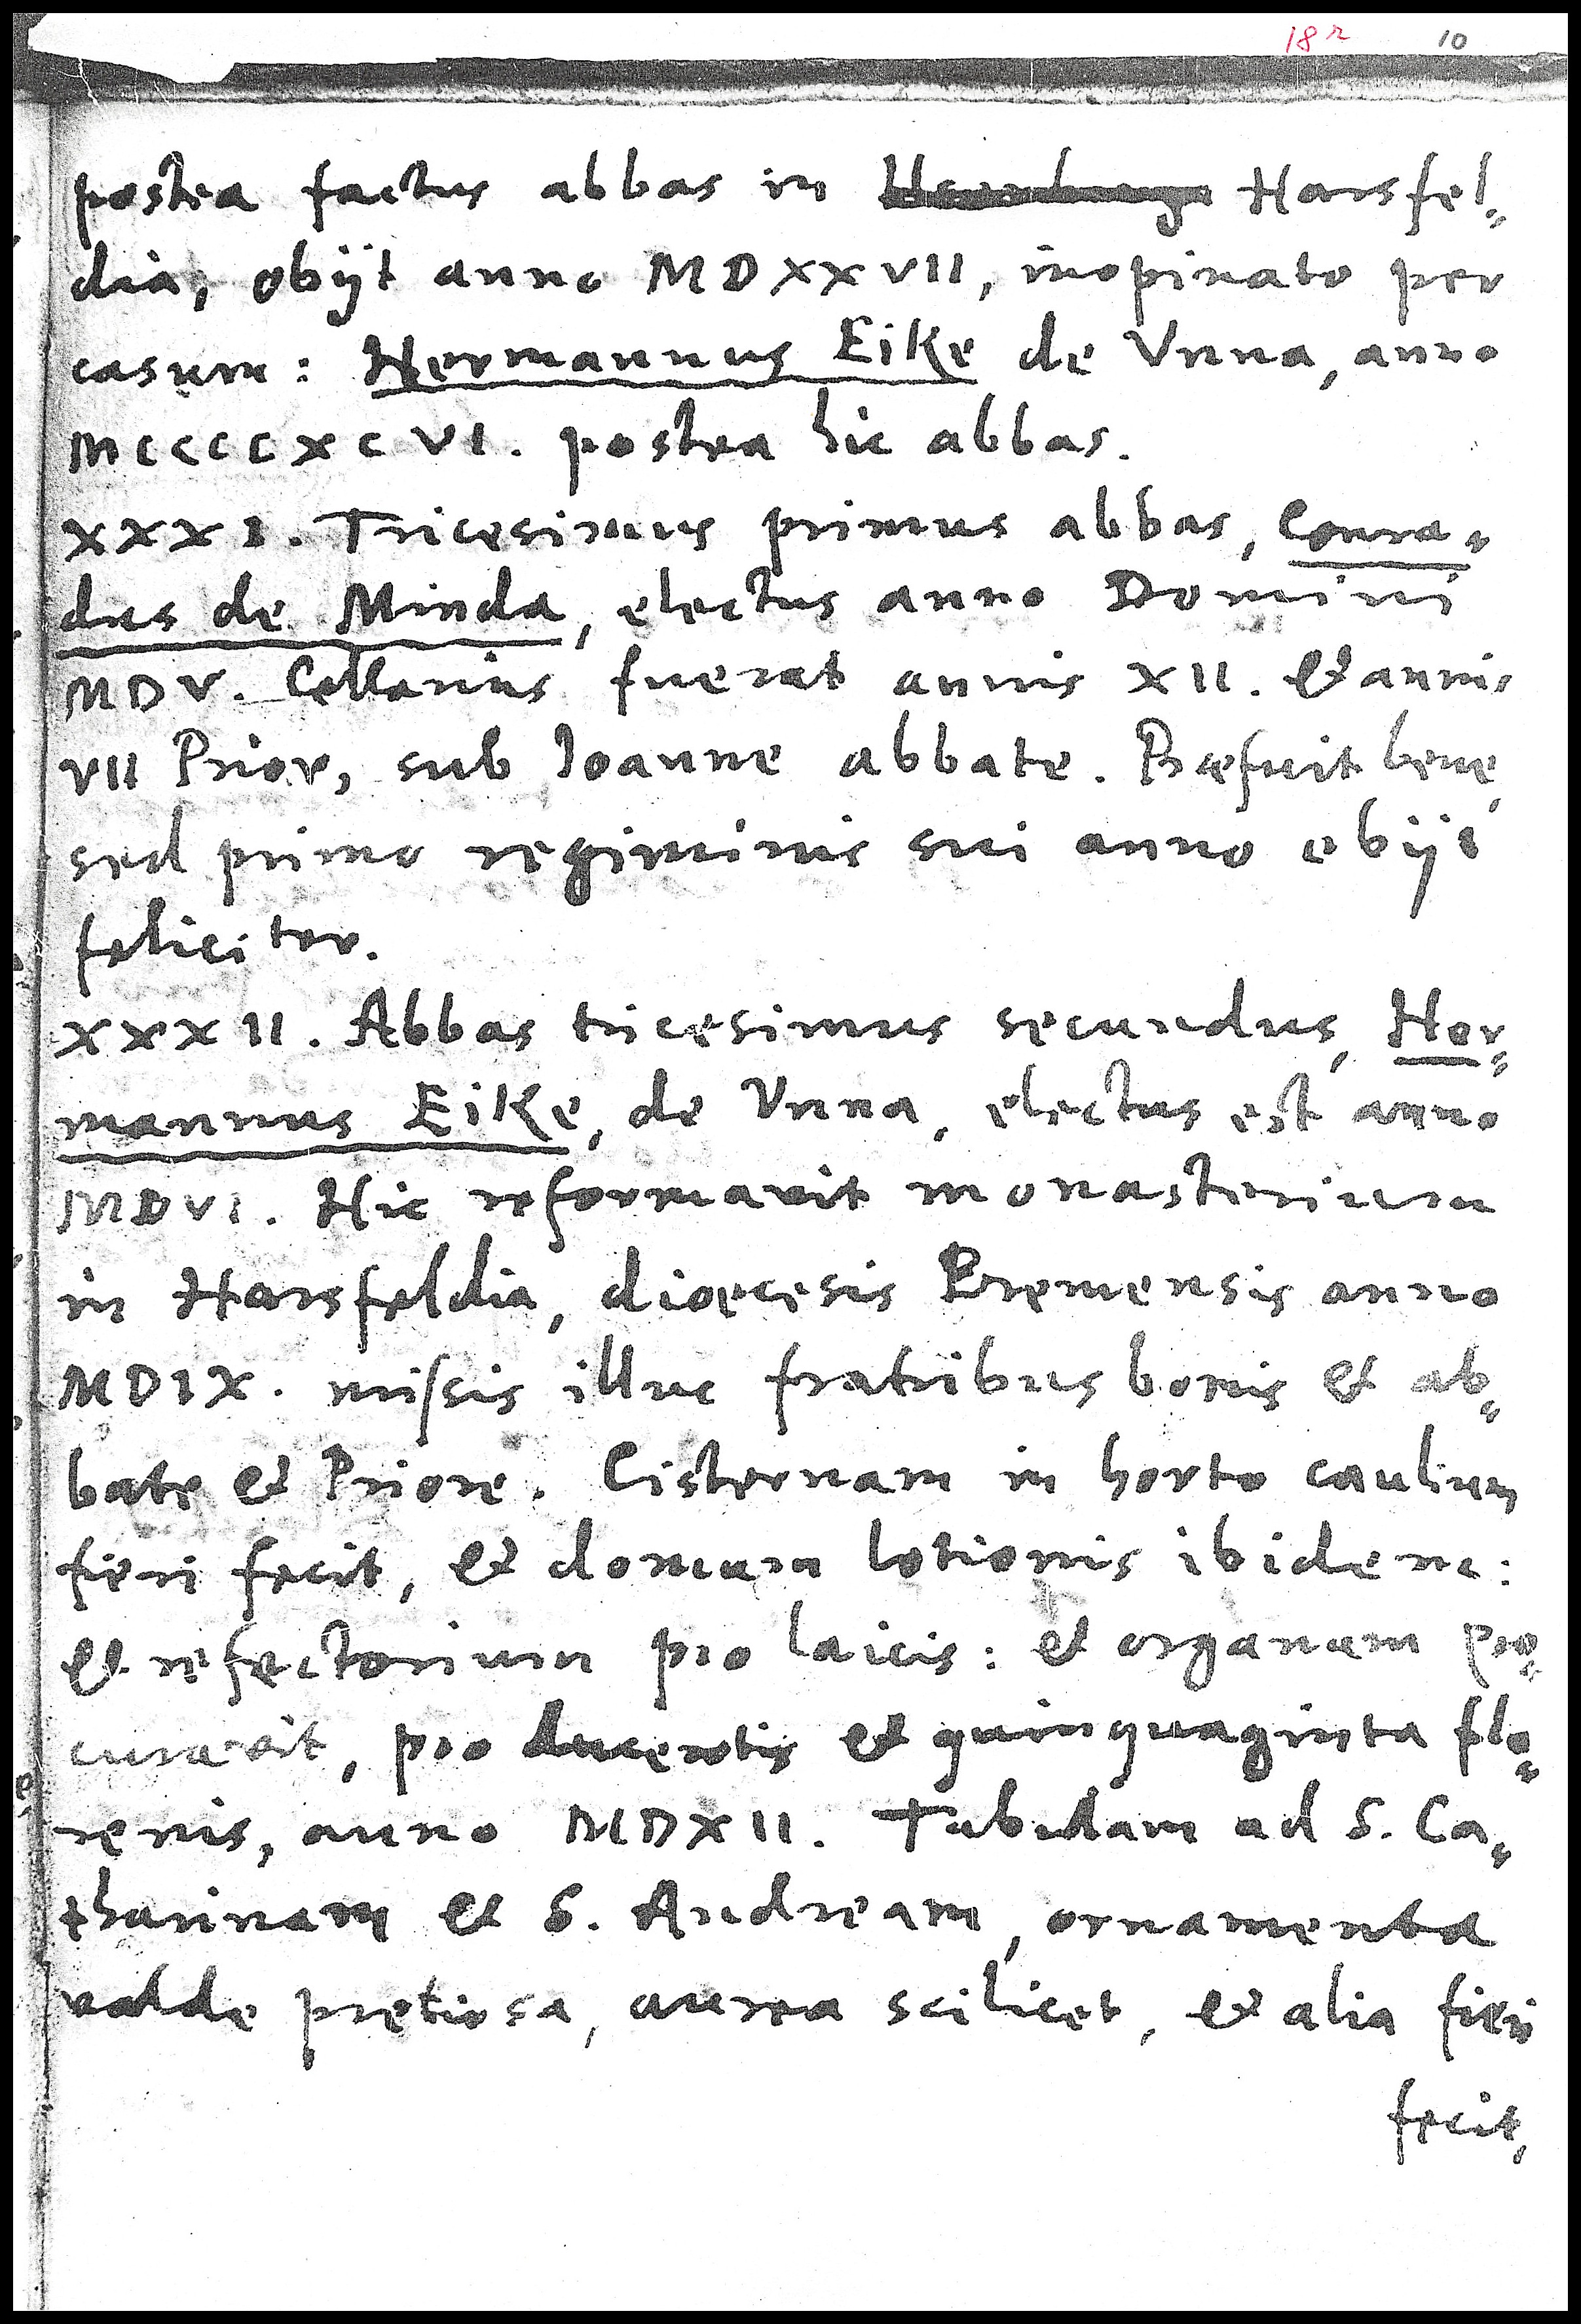 18r 10
postea factus abbas in Harsfel=
dia, obijt anno MDXXVII, inopinato per
casum: Hermannus Eike de Vnna, anno
MCCCCXCVI. postea hic abbas.
XXXI. Tricesimus primus abbas, Conra=
dus de Minda, electus anno Domini
MDV. Cellarius fuerat annis XII. et annis
VII Prior, sub Ioanne abbate. Præfuit bene,
sed primo regiminis sui anno obijt
feliciter.
XXXII. Abbas tricesimus secundus, Her=
mannus Eike, de Vnna, electus est anno
MDVI. Hic reformavit monasterium
in Harsfeldia, dioecesis Bremensis anno
MDIX. miſsis illuc fratribus bonis et ab=
bate et Priore. Cisternam in horto caulium
fieri fecit, et domum lotionis ibidem:
et refectorium pro laicis: et organum pro=
curavit, pro ducentis et quinquaginta flo=
renis, anno MDXII. Tabulam ad S. Ca=
tharinam et S. Andream, ornamenta
valde pretiosa, aurea scilicet, et alia fieri
fecit,